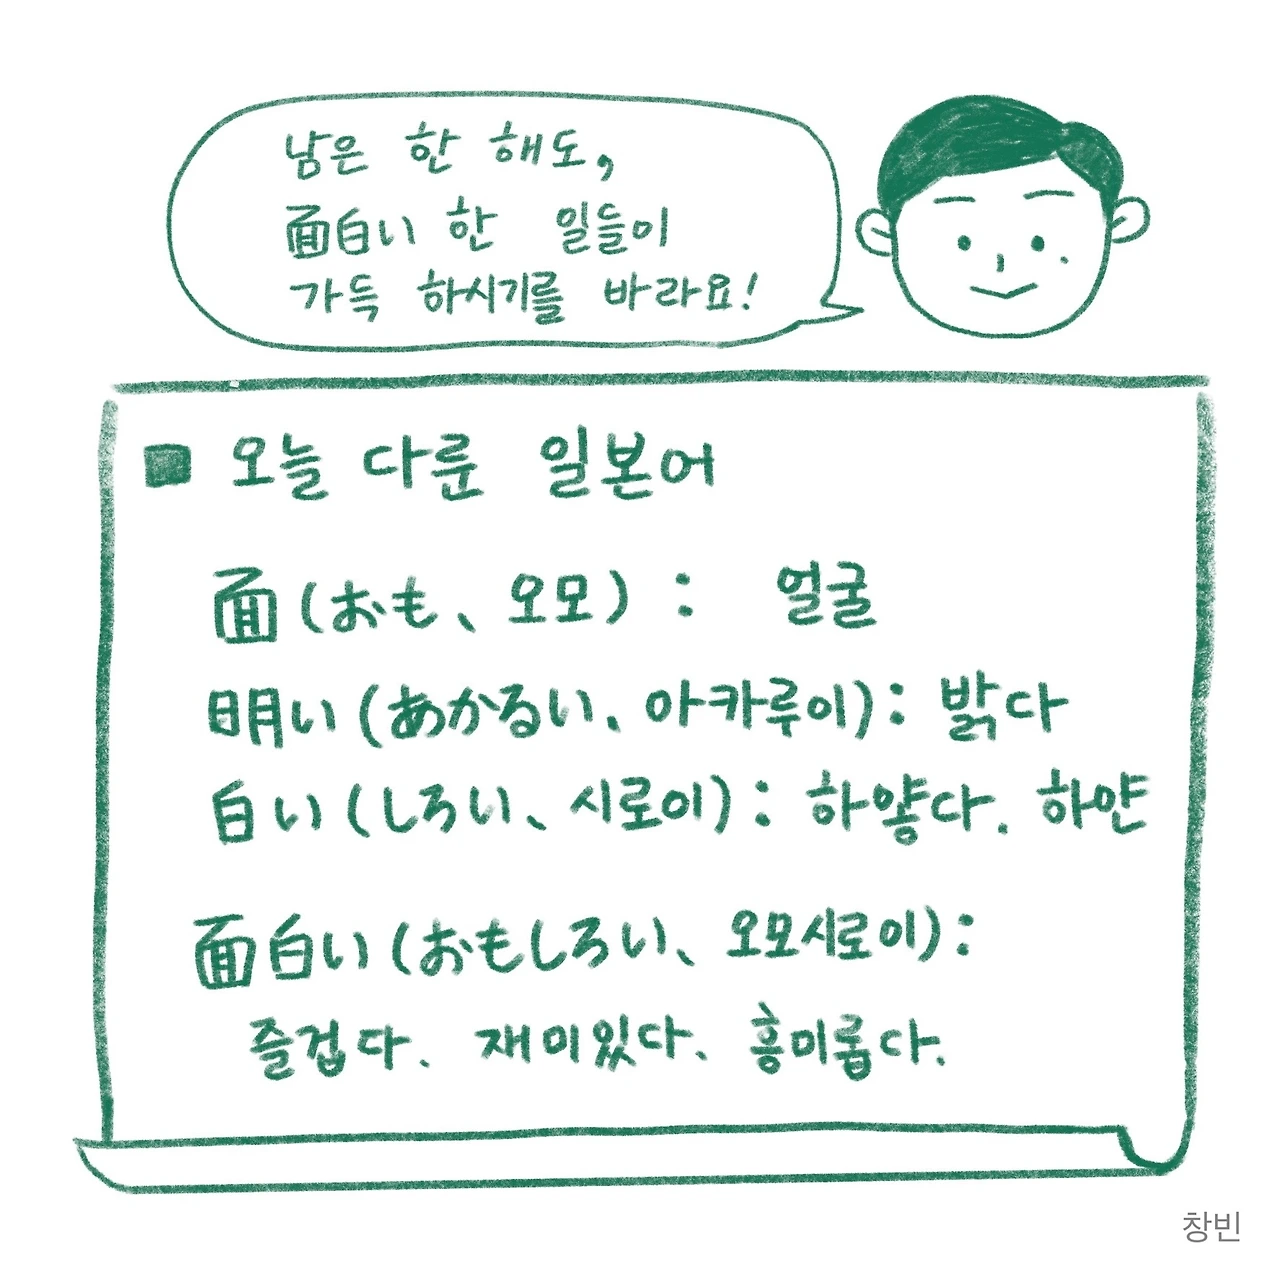 남은 한 해도,
面白い 한 일들이
가득 하시기를 바라요!
■ 오늘 다룬 일본어
面 (おも、오모) : 얼굴
明い (あかるい、아카루이) : 밝다
白い (しろい、시로이) : 하얗다. 하얀
面白い (おもしろい、오모시로이) :
즐겁다. 재미있다. 흥미롭다.
창빈